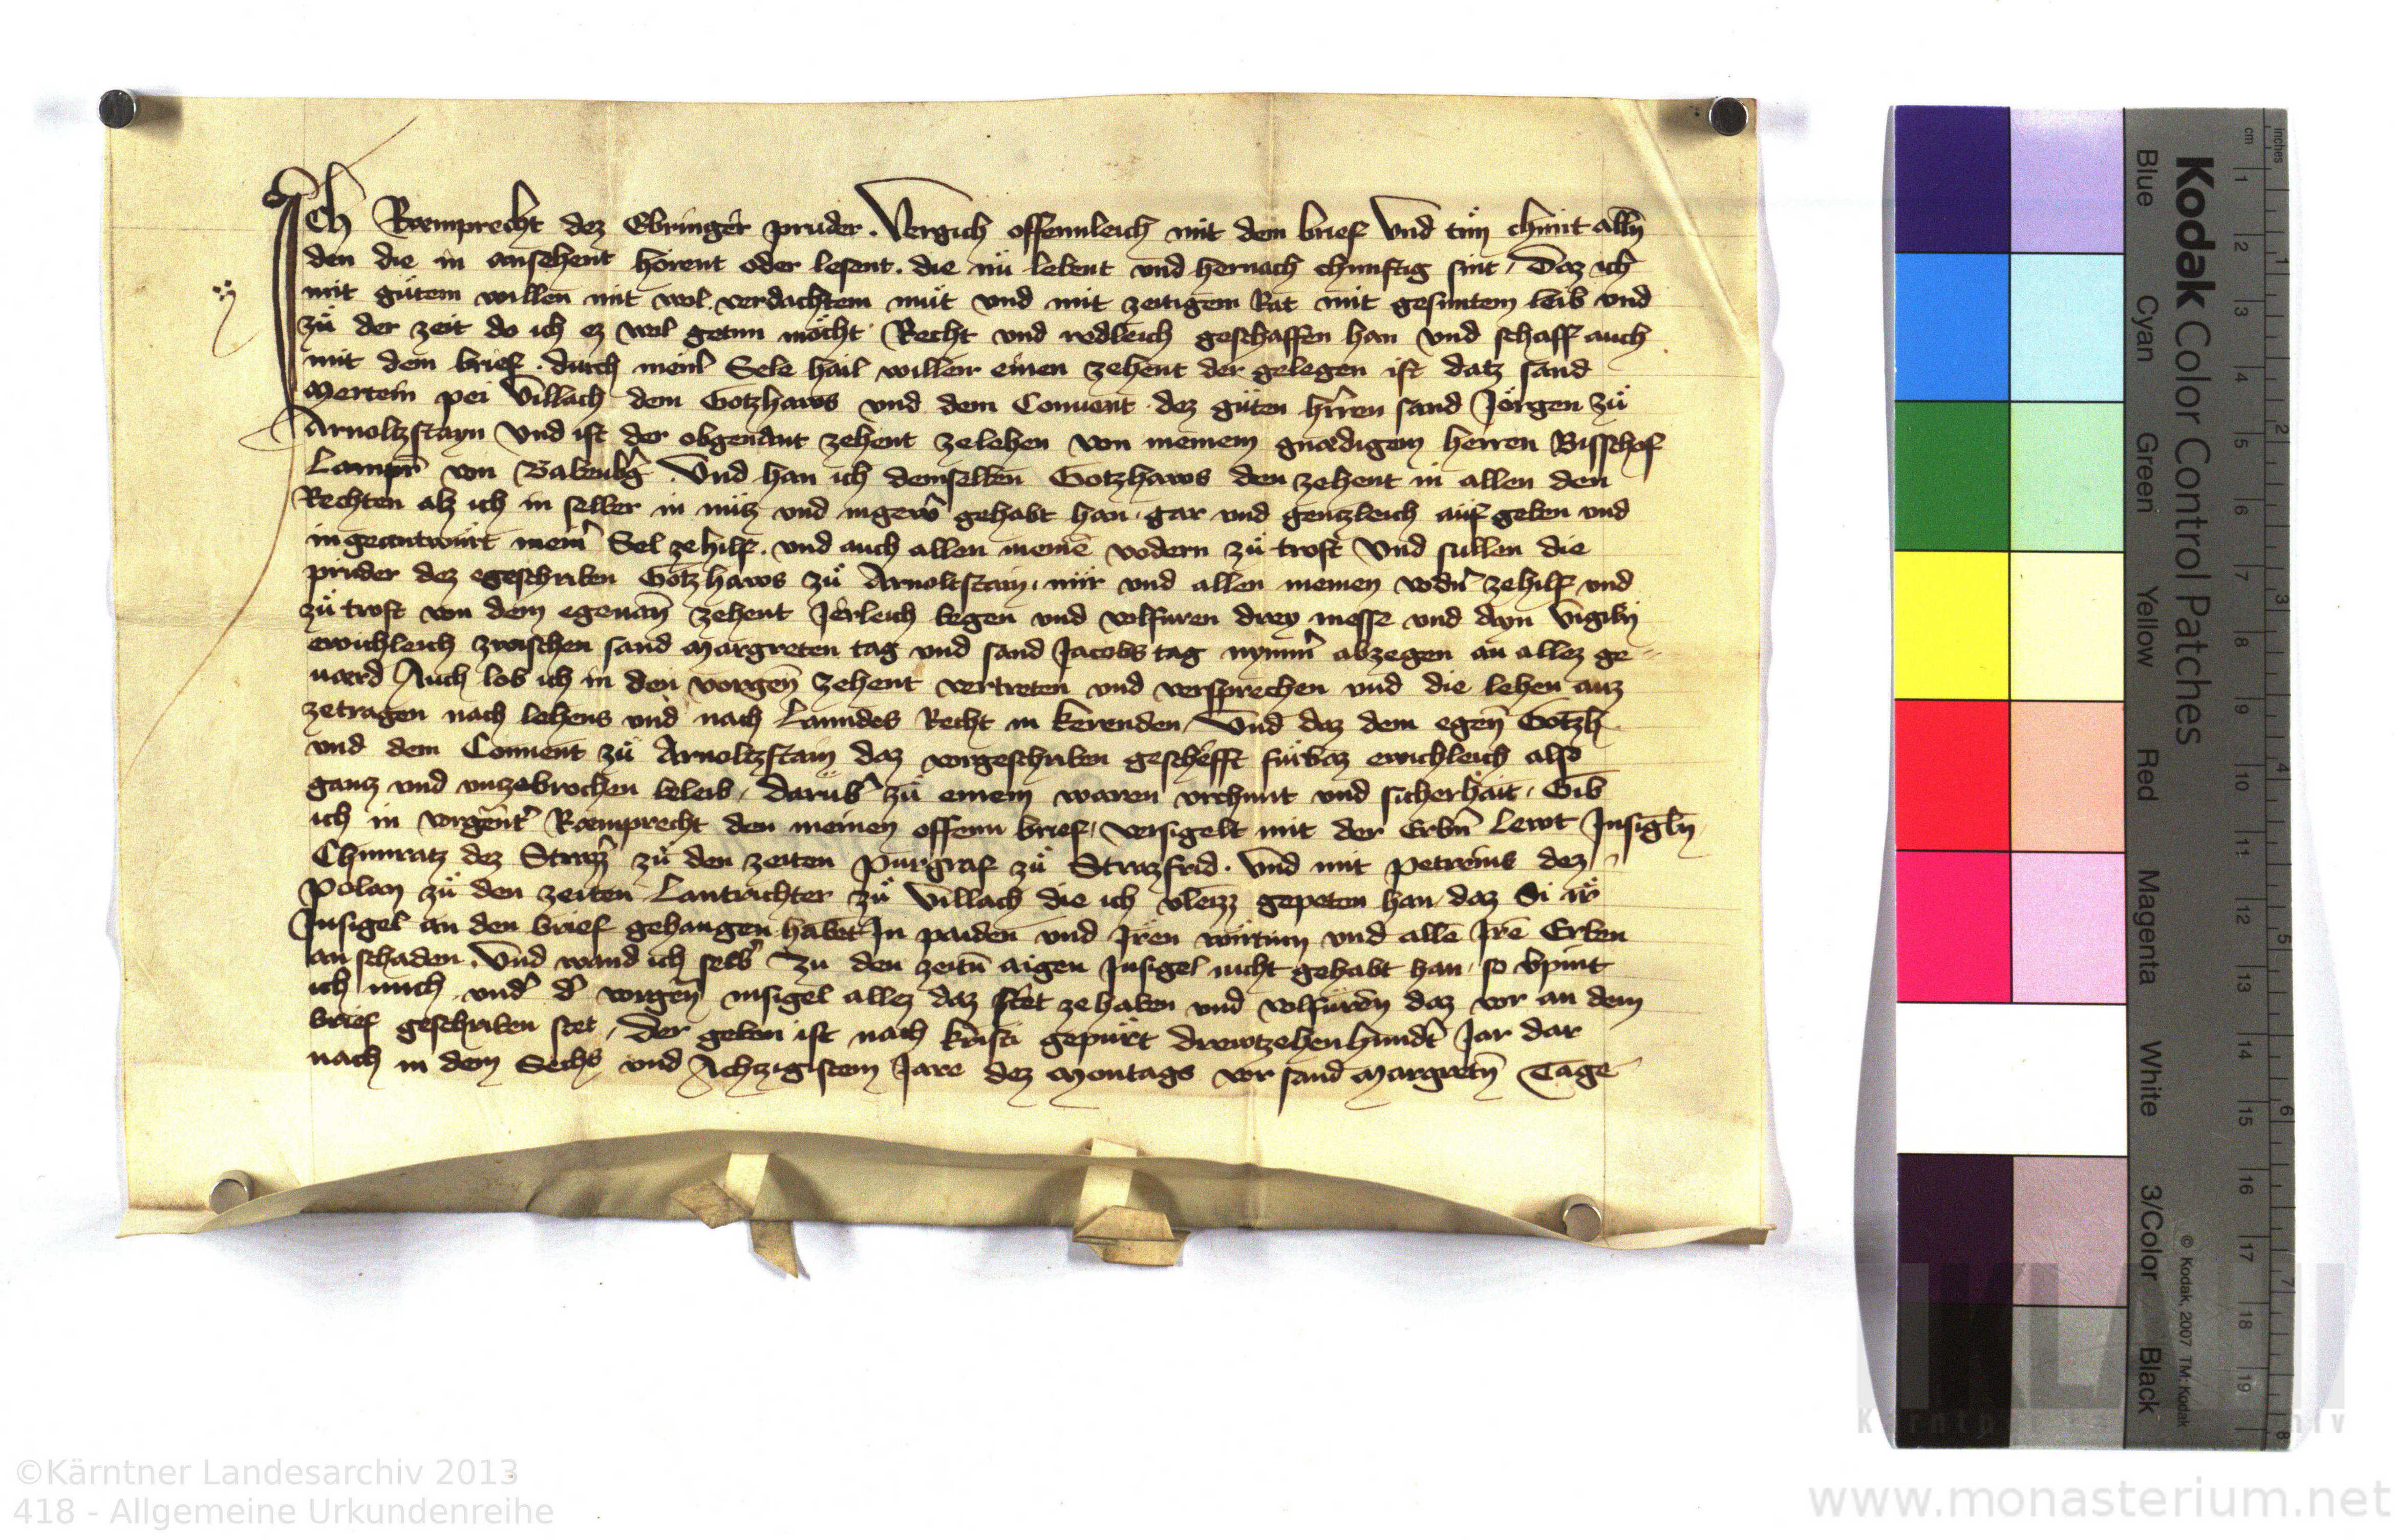 Ich Ræmprecht dez Ebringer pruder. Vergich offennleich mit dem brief Und tun chunt alln̄
den die in ansehent hörent oder lesent. die nu lebent und hernach chunftig sint, Daz ich
mit gütem willen mit wol verdachtem müt und mit zeitigem Rat mit gesuntem leib und
zü der zeit do ich ez wol getun möcht Recht und redleich geschaffen han und schaff auch
mit dem brief. durch mein' Sele hail willen einen zehent der gelegen ist datz sand
Mertein pei Villach dem Gotzhaws und dem Conuent dez güten h'ren sand Jörgen zü
Arnoltzstayn Und ist der obgenant zehent zelehen von meinem gnædigem herren Bisschof
Lampr' von Babenb'g. Und han ich demselben Gotzhaws den zehent in allen den
Rechten alz ich in selber in nütz und in gewer gehabt han gar und gentzleich auf geben und
in geantwürt mein' Sel ze hilf. und auch allen meinē vodern zü trost Und sullen die
prüder dez egeschriben Gotzhaws zü Arnoltstain, mir und allen meinen vodn' ze hilf und
zü trost von dem egenan̄ zehent Jerleich begen und volfuren drey messe und ayn Vigilij
ewichleich zwischen sand Margreten tag und sand Jacobs tag nymm' abzegen an allez ge=
værd Auch lob ich in den vorgen̄ zehent vertreten und versprechen und die lehen auz
zetragen nach lehens und nach Lanndes Recht in kerenden, Und daz dem egen̄ Gotzh
und dem Conuent zü Arnoltzstain daz vorgeschriben geschefft fürbaz ewichleich also
gantz und unzebrochen beleib, darüb' zü einem waren urchunt und sicherhait, Gib
ich in vorgent' Ræmprecht den meinen offenn brief, versigelt mit der Erbn' Lewt Insigln̄
Chunratz dez Straz' zü den zeiten Purgraf zü Strazfrid. Und mit Petreins dez
Polan zü den zeiten Lantrichter zü Villach die ich vleizz gepeten han daz Si ir
Insigel an den brief gehangen habēt In paiden und Iren wirtinn und allē Irē Erben
an schaden. Und wand ich selb' zu den zeitn̄ aigen Insigel nicht gehabt han, so vpint
ich mich und' d' vorgen̄ insigel allez daz stet ze haben und volfüren daz vor an dem
brief geschriben stet, Der geben ist nach Kristi gepürt drewtzehenhundt' Jar dar
nach in dem Sechs und Achtzigistem Jare dez Montags vor sand Margretn̄ Tage
Kodak Color Control Patches
Blue Cyan Green Yellow Red Magenta White 3/Color Black
© Kodak, 2007 TM: Kodak
cm 1 2 3 4 5 6 7 8 9 10 11 12 13 14 15 16 17 18 19
inches 1 2 3 4 5 6 7 8
©Kärntner Landesarchiv 2013
418 - Allgemeine Urkundenreihe
www.monasterium.net